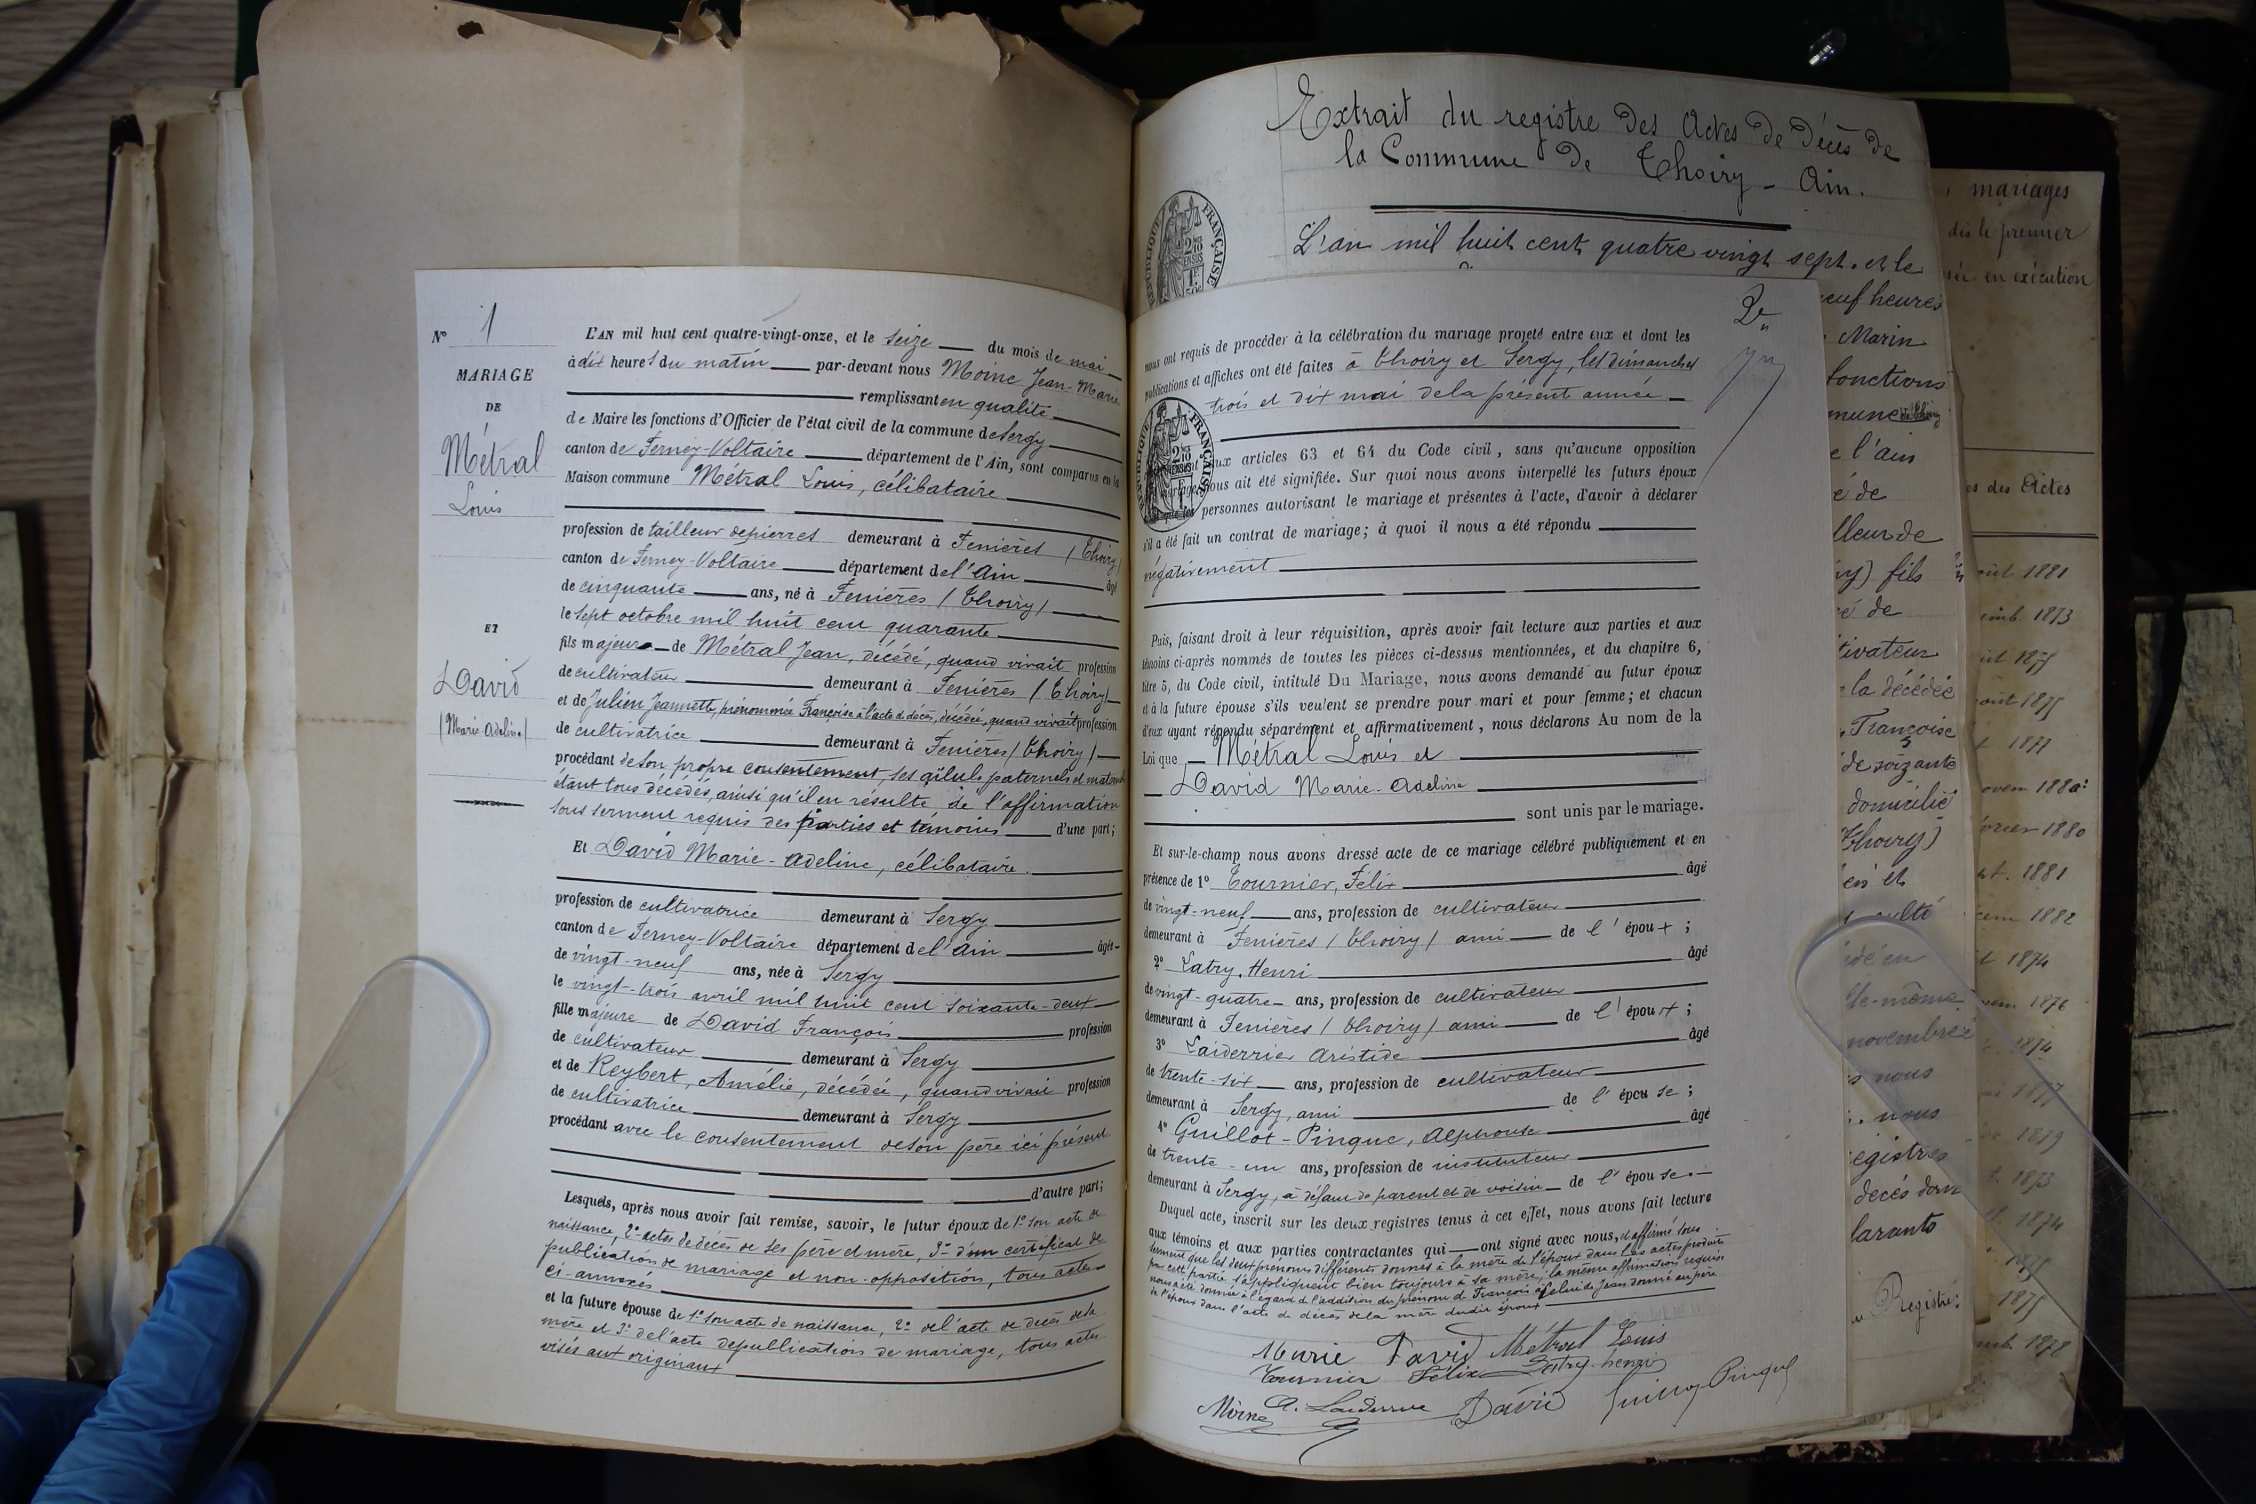 N° 1
MARIAGE
DE
Métral
Louis
ET
David
(Marie Adeline)
L'AN mil huit cent quatre-vingt-onze, et le seize du mois de mai
à dix heures du matin par-devant nous Moine Jean-Marie
remplissant en qualité
de Maire les fonctions d'Officier de l'état civil de la commune de Sergy
canton de Ferney-Voltaire département de l'Ain, sont comparus en la
Maison commune Métral Louis, célibataire
profession de tailleur de pierres demeurant à Fenières (Thoiry)
canton de Ferney-Voltaire département de l'Ain âgé
de cinquante ans, né à Fenières (Thoiry)
le sept octobre mil huit cent quarante
fils majeur de Métral Jean, décédé, quand vivait profession
de cultivateur demeurant à Fenières (Thoiry)
et de Julien Jeannette, prénommée Françoise à l'acte de décès, décédée, quand vivait profession
de cultivatrice demeurant à Fenières (Thoiry)
procédant de son propre consentement, ses aïeuls paternels et maternels
étant tous décédés, ainsi qu'il en résulte de l'affirmation
sous serment requis des parties et témoins d'une part;
Et David Marie-Adeline, célibataire
profession de cultivatrice demeurant à Sergy
canton de Ferney-Voltaire département de l'Ain âgée
de vingt-neuf ans, née à Sergy
le vingt-trois avril mil huit cent soixante-deux
fille majeure de David François profession
de cultivateur demeurant à Sergy
et de Reybert, Amélie, décédée, quand vivait profession
de cultivatrice demeurant à Sergy
procédant avec le consentement de son père ici présent
d'autre part;
Lesquels, après nous avoir fait remise, savoir, le futur époux de 1° son acte de
naissance, 2° actes de décès de ses père et mère, 3° d'un certificat de
publication de mariage et non-opposition, tous actes
ci-annexés
et la future épouse de 1° son acte de naissance, 2° de l'acte de décès de la
mère et 3° de l'acte de publication de mariage, tous actes
visés aux originaux
Extrait du registre des Actes de Décès de
la Commune de Thoiry - Ain.
RÉPUBLIQUE FRANÇAISE
L'an mil huit cent quatre vingt sept, et le
nous ont requis de procéder à la célébration du mariage projeté entre eux et dont les
publications et affiches ont été faites à Thoiry et Sergy, les dimanches
trois et dix mai de la présente année
RÉPUBLIQUE FRANÇAISE
aux articles 63 et 64 du Code civil, sans qu'aucune opposition
nous ait été signifiée. Sur quoi nous avons interpellé les futurs époux
personnes autorisant le mariage et présentes à l'acte, d'avoir à déclarer
s'il a été fait un contrat de mariage; à quoi il nous a été répondu
négativement
Puis, faisant droit à leur réquisition, après avoir fait lecture aux parties et aux
témoins ci-après nommés de toutes les pièces ci-dessus mentionnées, et du chapitre 6,
titre 5, du Code civil, intitulé Du Mariage, nous avons demandé au futur époux
et à la future épouse s'ils veulent se prendre pour mari et pour femme; et chacun
d'eux ayant répondu séparément et affirmativement, nous déclarons Au nom de la
Loi que Métral Louis et
David Marie-Adeline
sont unis par le mariage.
Et sur-le-champ nous avons dressé acte de ce mariage célébré publiquement et en
présence de 1° Tournier, Félix âgé
de vingt-neuf ans, profession de cultivateur
demeurant à Fenières (Thoiry) ami de l'époux;
2° Latry, Henri âgé
de vingt-quatre ans, profession de cultivateur
demeurant à Fenières (Thoiry) ami de l'époux;
3° Laiderrier Aristide âgé
de trente-six ans, profession de cultivateur
demeurant à Sergy, ami de l'épouse;
4° Guillot-Pingue, Alphonse âgé
de trente-un ans, profession de instituteur
demeurant à Sergy, à défaut de parent et de voisin de l'épouse
Duquel acte, inscrit sur les deux registres tenus à cet effet, nous avons fait lecture
aux témoins et aux parties contractantes qui ont signé avec nous, et affirmé sous
serment que les deux prénoms différents donnés à la mère de l'époux dans les actes produits
par cette partie s'appliquent bien toujours à sa mère, la même affirmation requise
nous a été donnée à l'égard de l'addition du prénom de François à celui de Jean donné au père
de l'époux dans l'acte de décès de la mère dudit époux
Marie David Métral Louis
Tournier Félix Latry henri
Moine A. Laiderrier David Guillot Pingue
neuf heures
Marin
fonctions
l'ain
de
fils
de
la décédée
Françoise
de soixante
domicilié
Thoiry)
et
en
novembre
nous
nous
registres
decés dont
Registre:
mariages
dès le premier
en exécution
des Actes
1881
1873
1875
août 1875
1877
1880
1880
1881
1882
1874
1876
1874
1877
1879
1873
1874
1875
1878